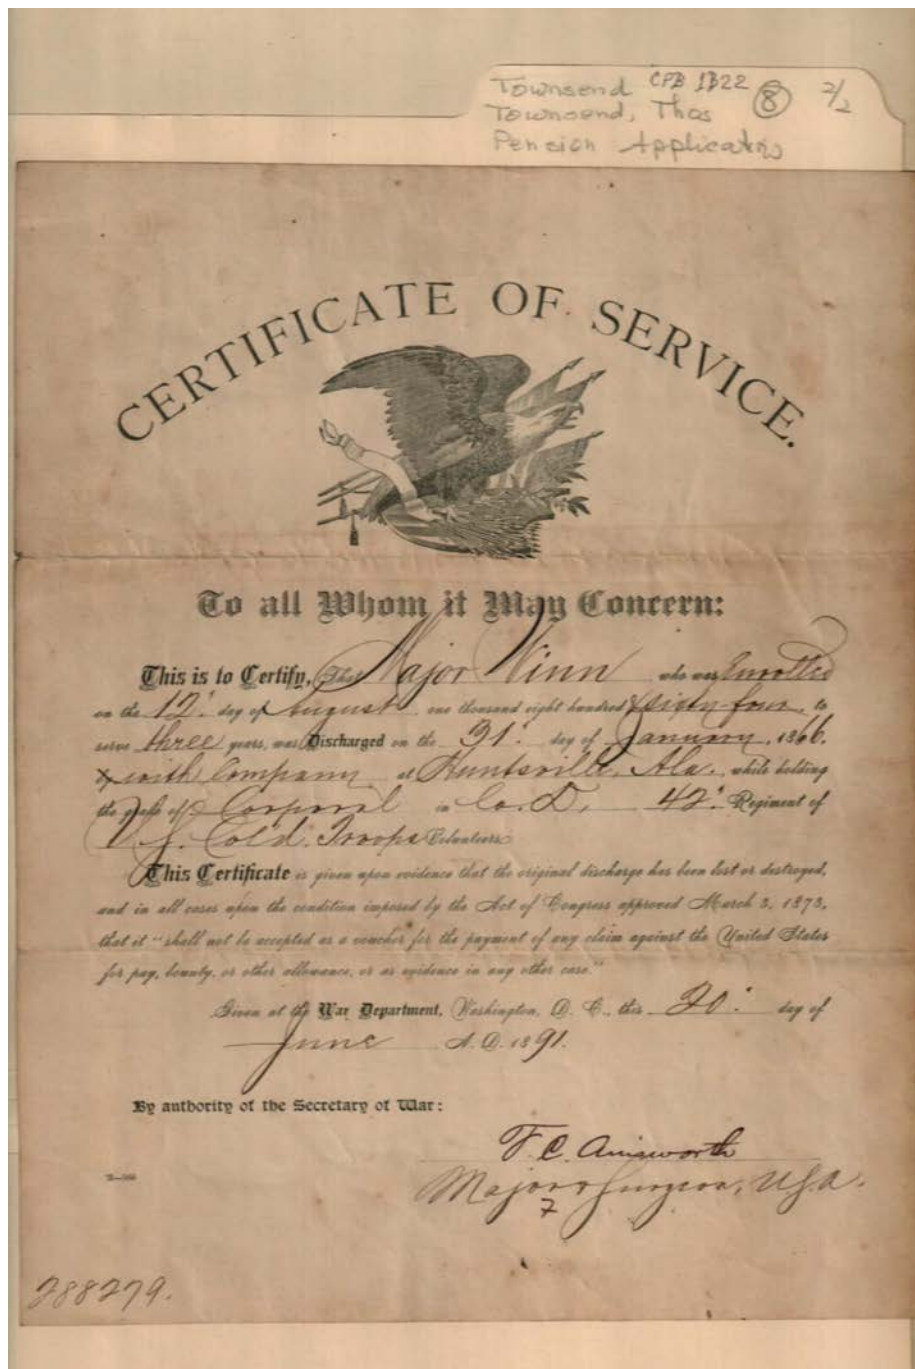 Townsend CPB 1B22 8 2/2
Townsend, Thos
Pension Applications
CERTIFICATE OF SERVICE.
To all Whom it May Concern:
This is to Certify, That Major Winn who was Enrolled
on the 12" day of August one thousand eight hundred & sixty four, to
serve three years, was Discharged on the 31" day of January, 1866,
with Company at Huntsville, Ala. while holding
the grade of Corporal in Co. D, 42" Regiment of
U.S. Col'd. Troops Volunteers
This Certificate is given upon evidence that the original discharge has been lost or destroyed,
and in all cases upon the condition imposed by the Act of Congress approved March 3, 1873,
that it "shall not be accepted as a voucher for the payment of any claim against the United States
for pay, bounty, or other allowance, or as evidence in any other case."
Given at the War Department, Washington, D. C., this 20" day of
June A. D. 1891.
By authority of the Secretary of War:
F. C. Ainsworth
Major & Surgeon, U.S.A.
7
288279.